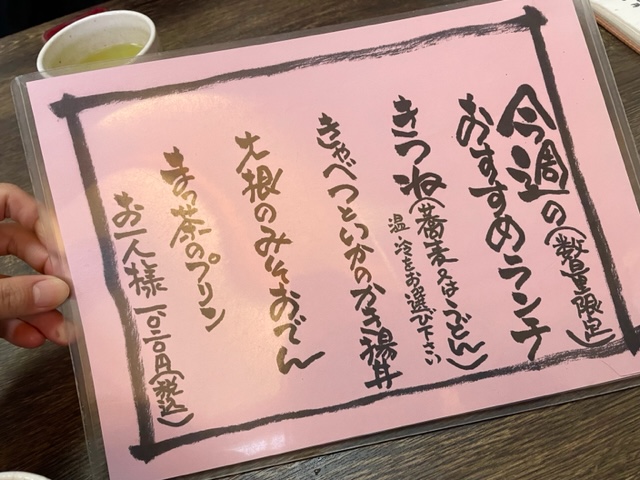 今週の(数量限定)
おすすめランチ
きつね(蕎麦又はうどん)
温・冷をお選び下さい
きゃべつといかのかき揚丼
大根のみそおでん
まっ茶のプリン
お一人様 一〇二〇円(税込)